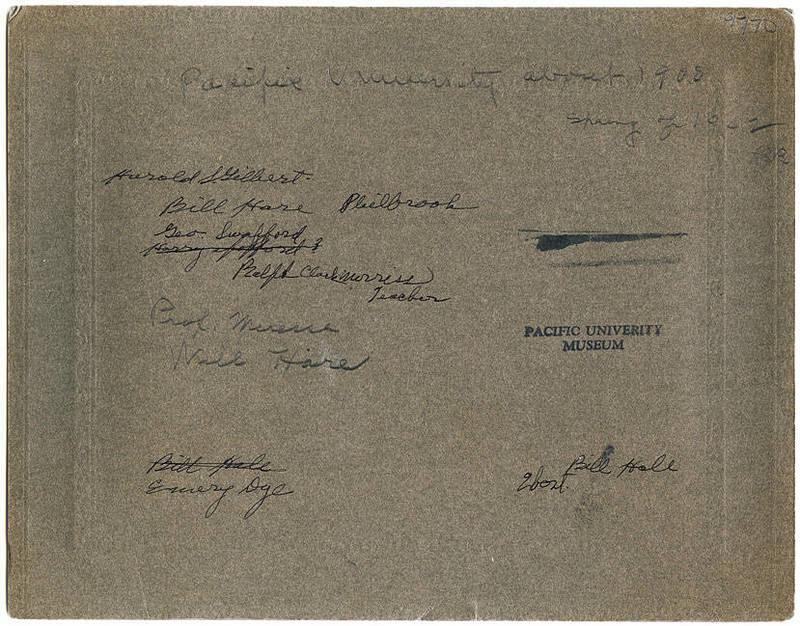 9770
Pacific University about 1908
Spring of
Harold S. Gilbert
Bill Hare Philbrook
Geo. Swafford
Harry
Ralph Clark Morriss
Teacher
Prof.
Will Hare
PACIFIC UNIVERITY
MUSEUM
Bill Hale
Emery Dye
Bill Hale